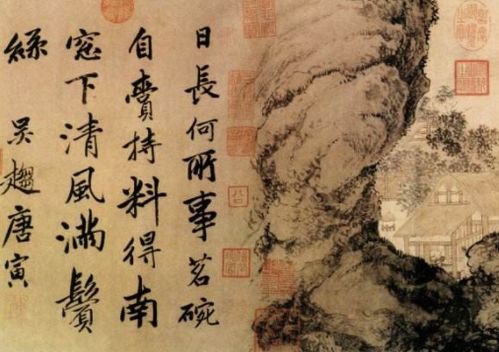 日長何所事茗碗
自賫持料得南
窓下清風滿鬢
絲　吳趨唐寅